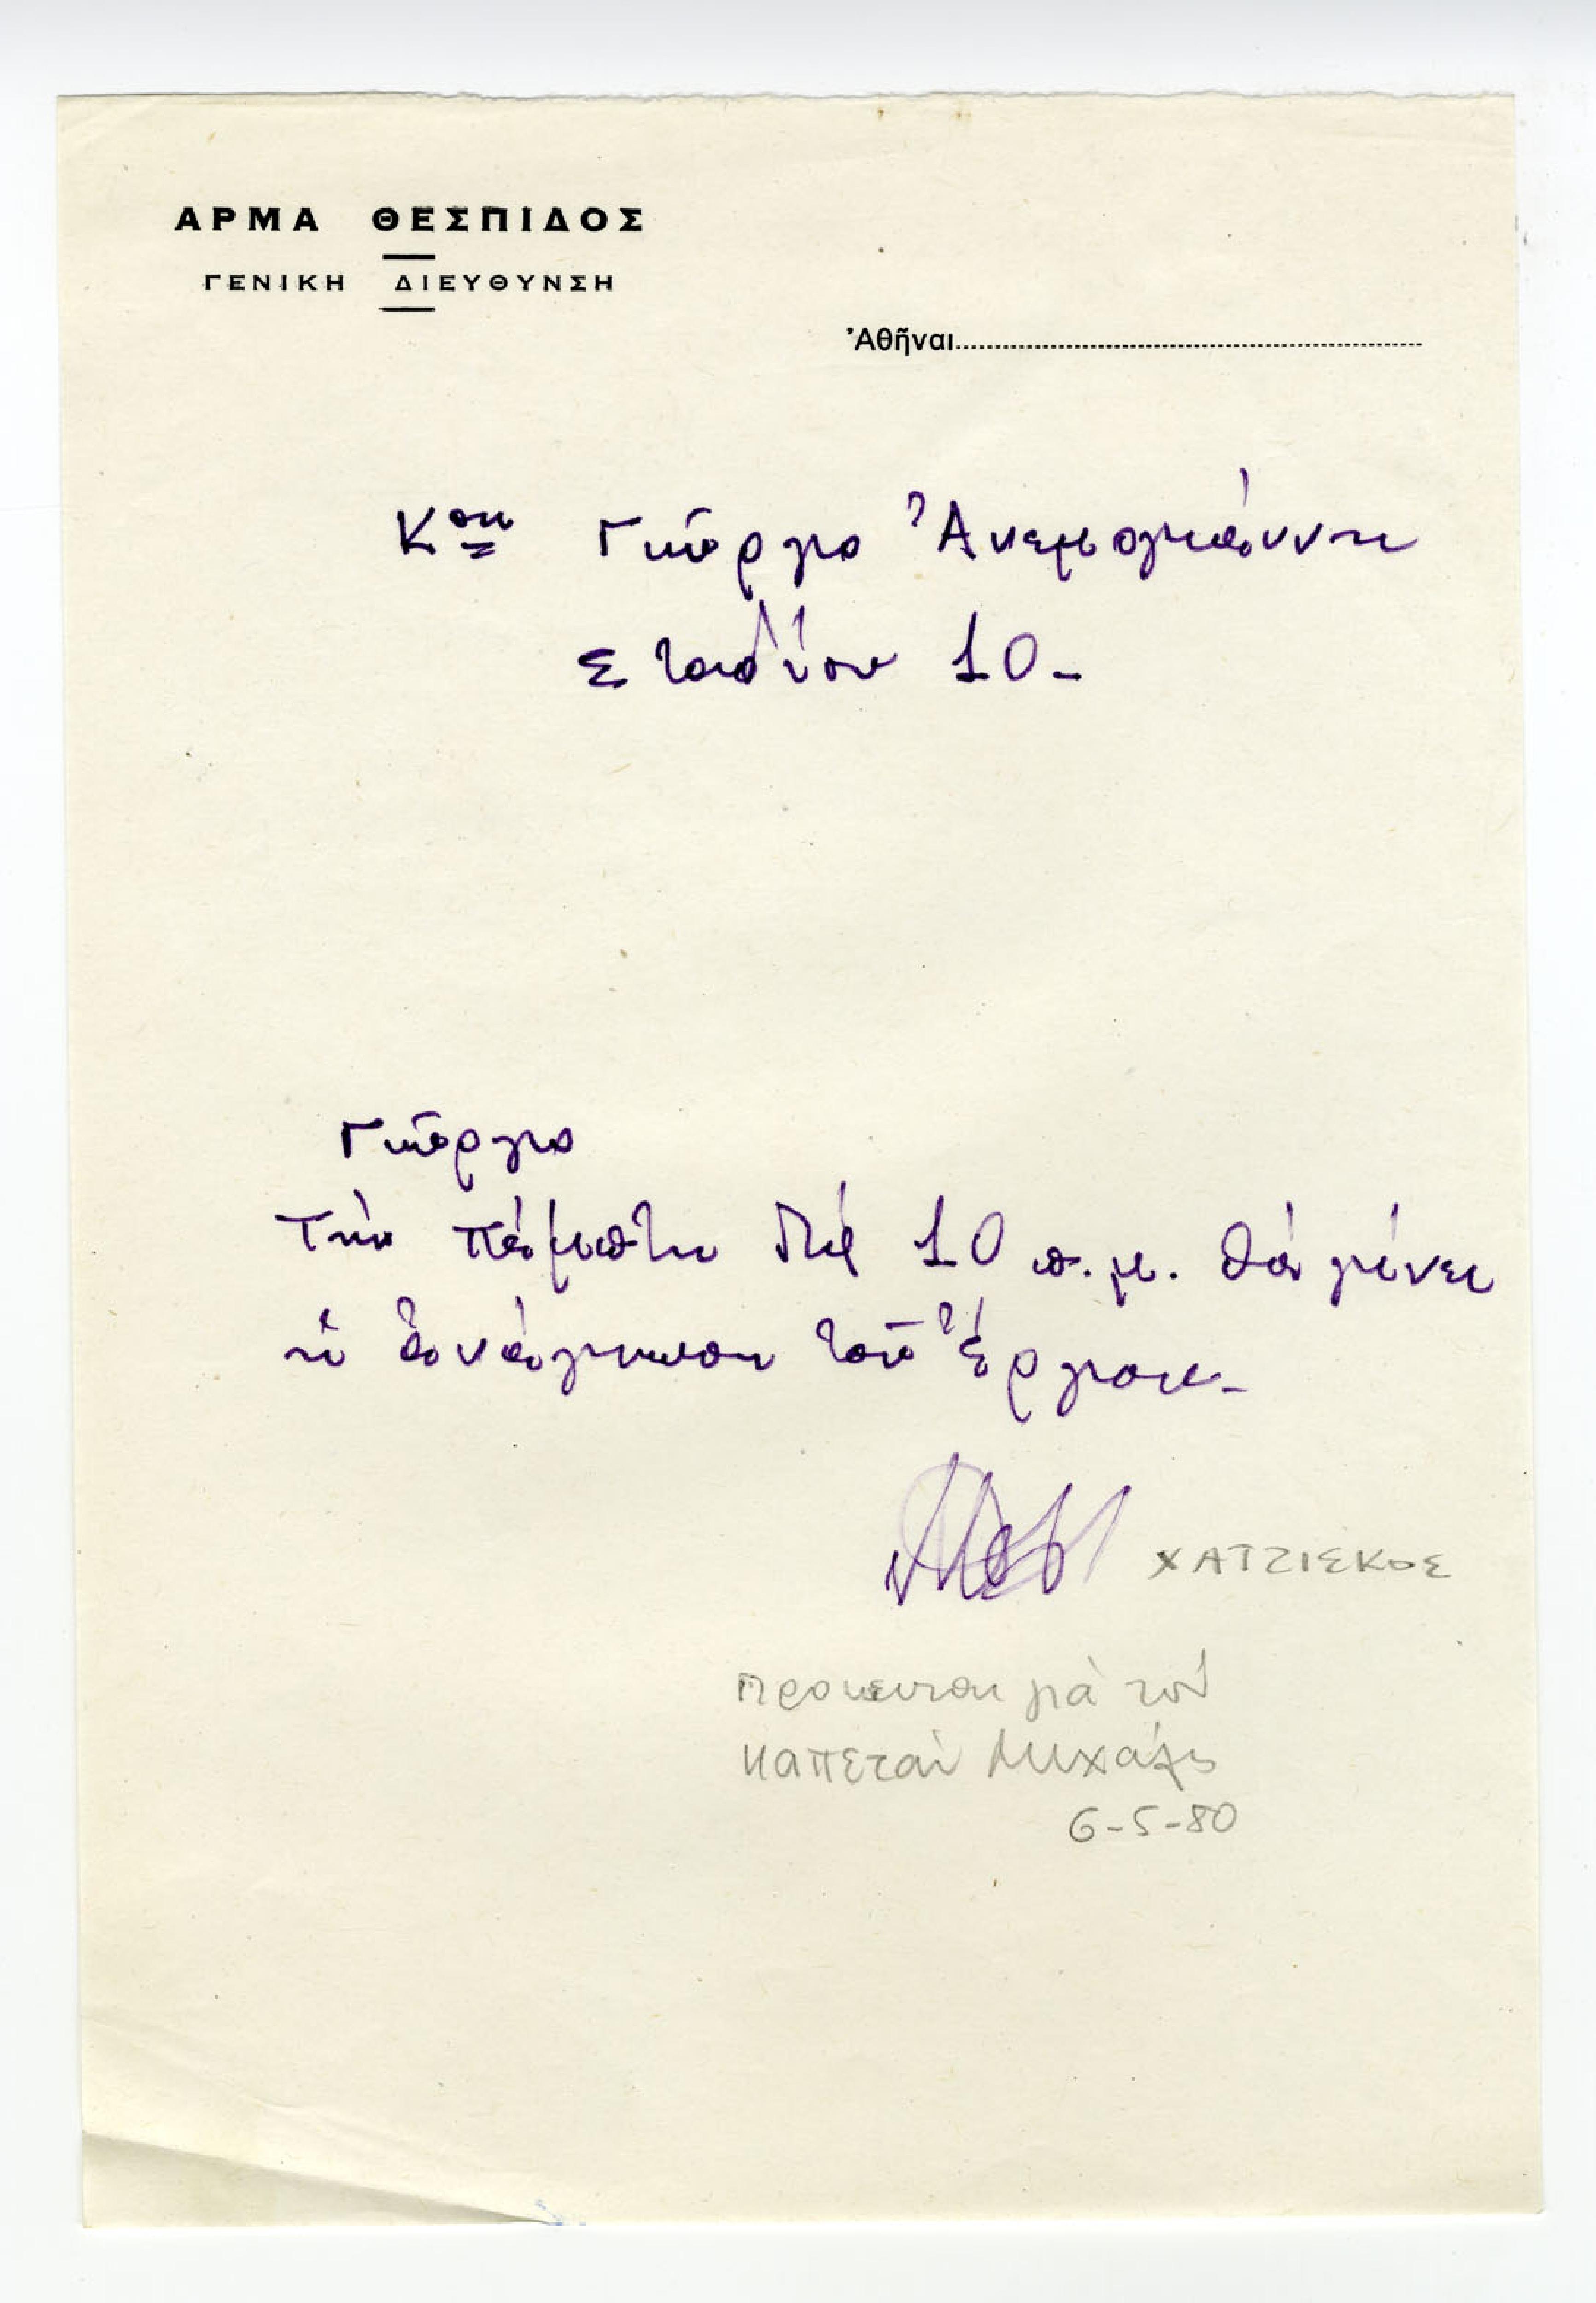 ΑΡΜΑ ΘΕΣΠΙΔΟΣ
ΓΕΝΙΚΗ ΔΙΕΥΘΥΝΣΗ
Ἀθῆναι
Κον Γιῶργο Ἀνεμογιάννη
Σταδίου 10-
Γιῶργο
Τὴν πέμπτη στὶς 10 π.μ. θὰ γίνει
ἡ ἀνάγνωση τοῦ Ἔργου-
ΧΑΤΖΙΣΚΟΣ
Προκειται γιὰ τὸν
καπετὰν Μιχάλη
6-5-80